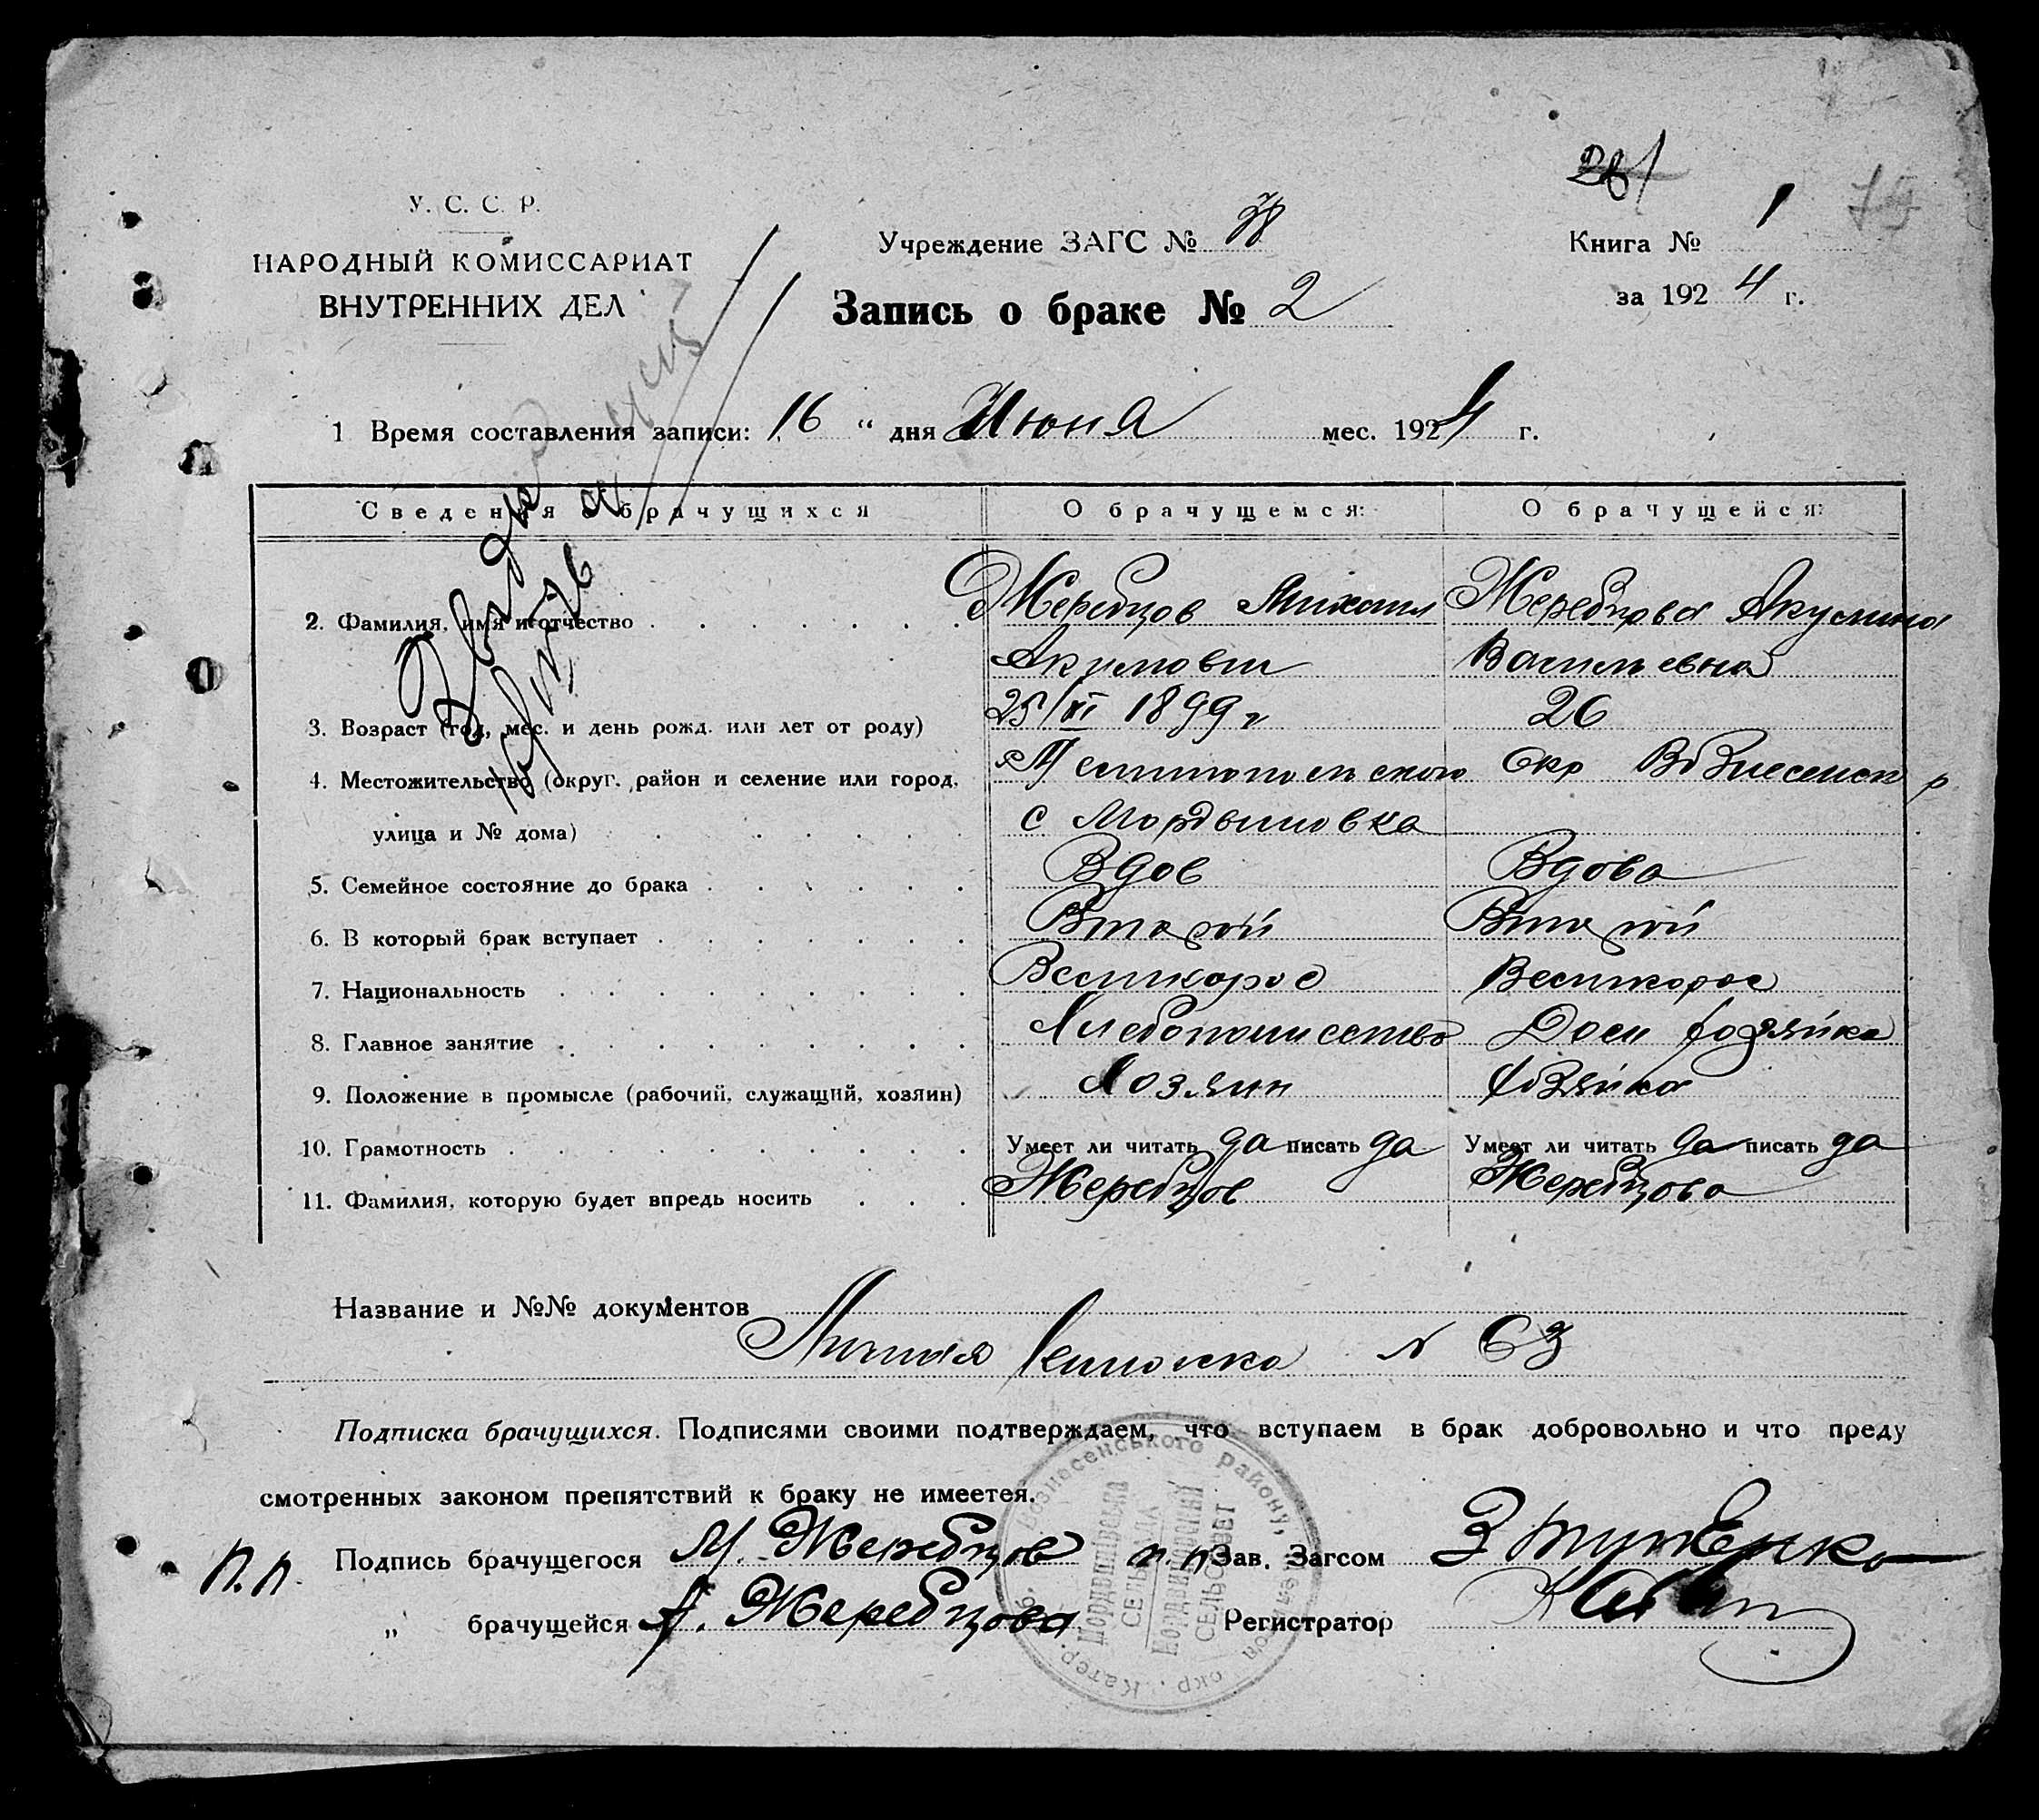 У. С. С. Р.
НАРОДНЫЙ КОМИССАРИАТ
ВНУТРЕННИХ ДЕЛ
Учреждение ЗАГС №
Книга № 1
Запись о браке № 2
за 192 4 г.
1 Время составления записи: 16 “ дня Июня мес. 1924 г.
Сведения о брачущихся О брачущемся: О брачущейся:
2. Фамилия, имя и отчество Жеребцов Михаил Жеребцова Акулина
Акимович Васильевна
3. Возраст (год, мес. и день рожд. или лет от роду) 25/XI 1899 г 26
4. Местожительство (округ, район и селение или город, Мелитопольского Окр Вознесенск р
улица и № дома) с Мордвиновка
5. Семейное состояние до брака Вдов Вдова
6. В который брак вступает Второй Второй
7. Национальность Великорос Великорос
8. Главное занятие Хлебопашество Дом хозяйка
9. Положение в промысле (рабочий, служащий, хозяин) Хозяин Хозяйка
10. Грамотность Умеет ли читать да писать да Умеет ли читать да писать да
11. Фамилия, которую будет впредь носить Жеребцов Жеребцова
Название и №№ документов
Личная N 63
Подписка брачущихся. Подписями своими подтверждаем, что вступаем в брак добровольно и что преду
смотренных законом препятствий к браку не имеется.
п.п. Подпись брачущегося М. Жеребцов п.п Зав. Загсом
„ брачущейся А. Жеребцова Регистратор
Вознесенського району,
Мордвинівська
СЕЛЬРАДА
Мордвиновский
СЕЛЬСОВЕТ
окр. Катер.